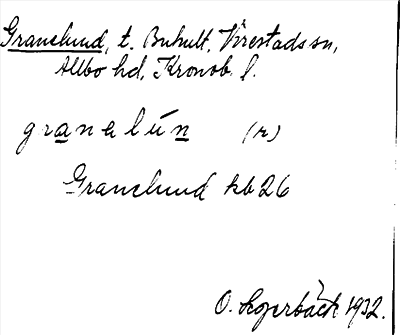 Granelund, t. Buhult, Virestads sn,
Allbo hd, Kronob. l.
granelún (r)
Granelund kb 26
O. 1932.